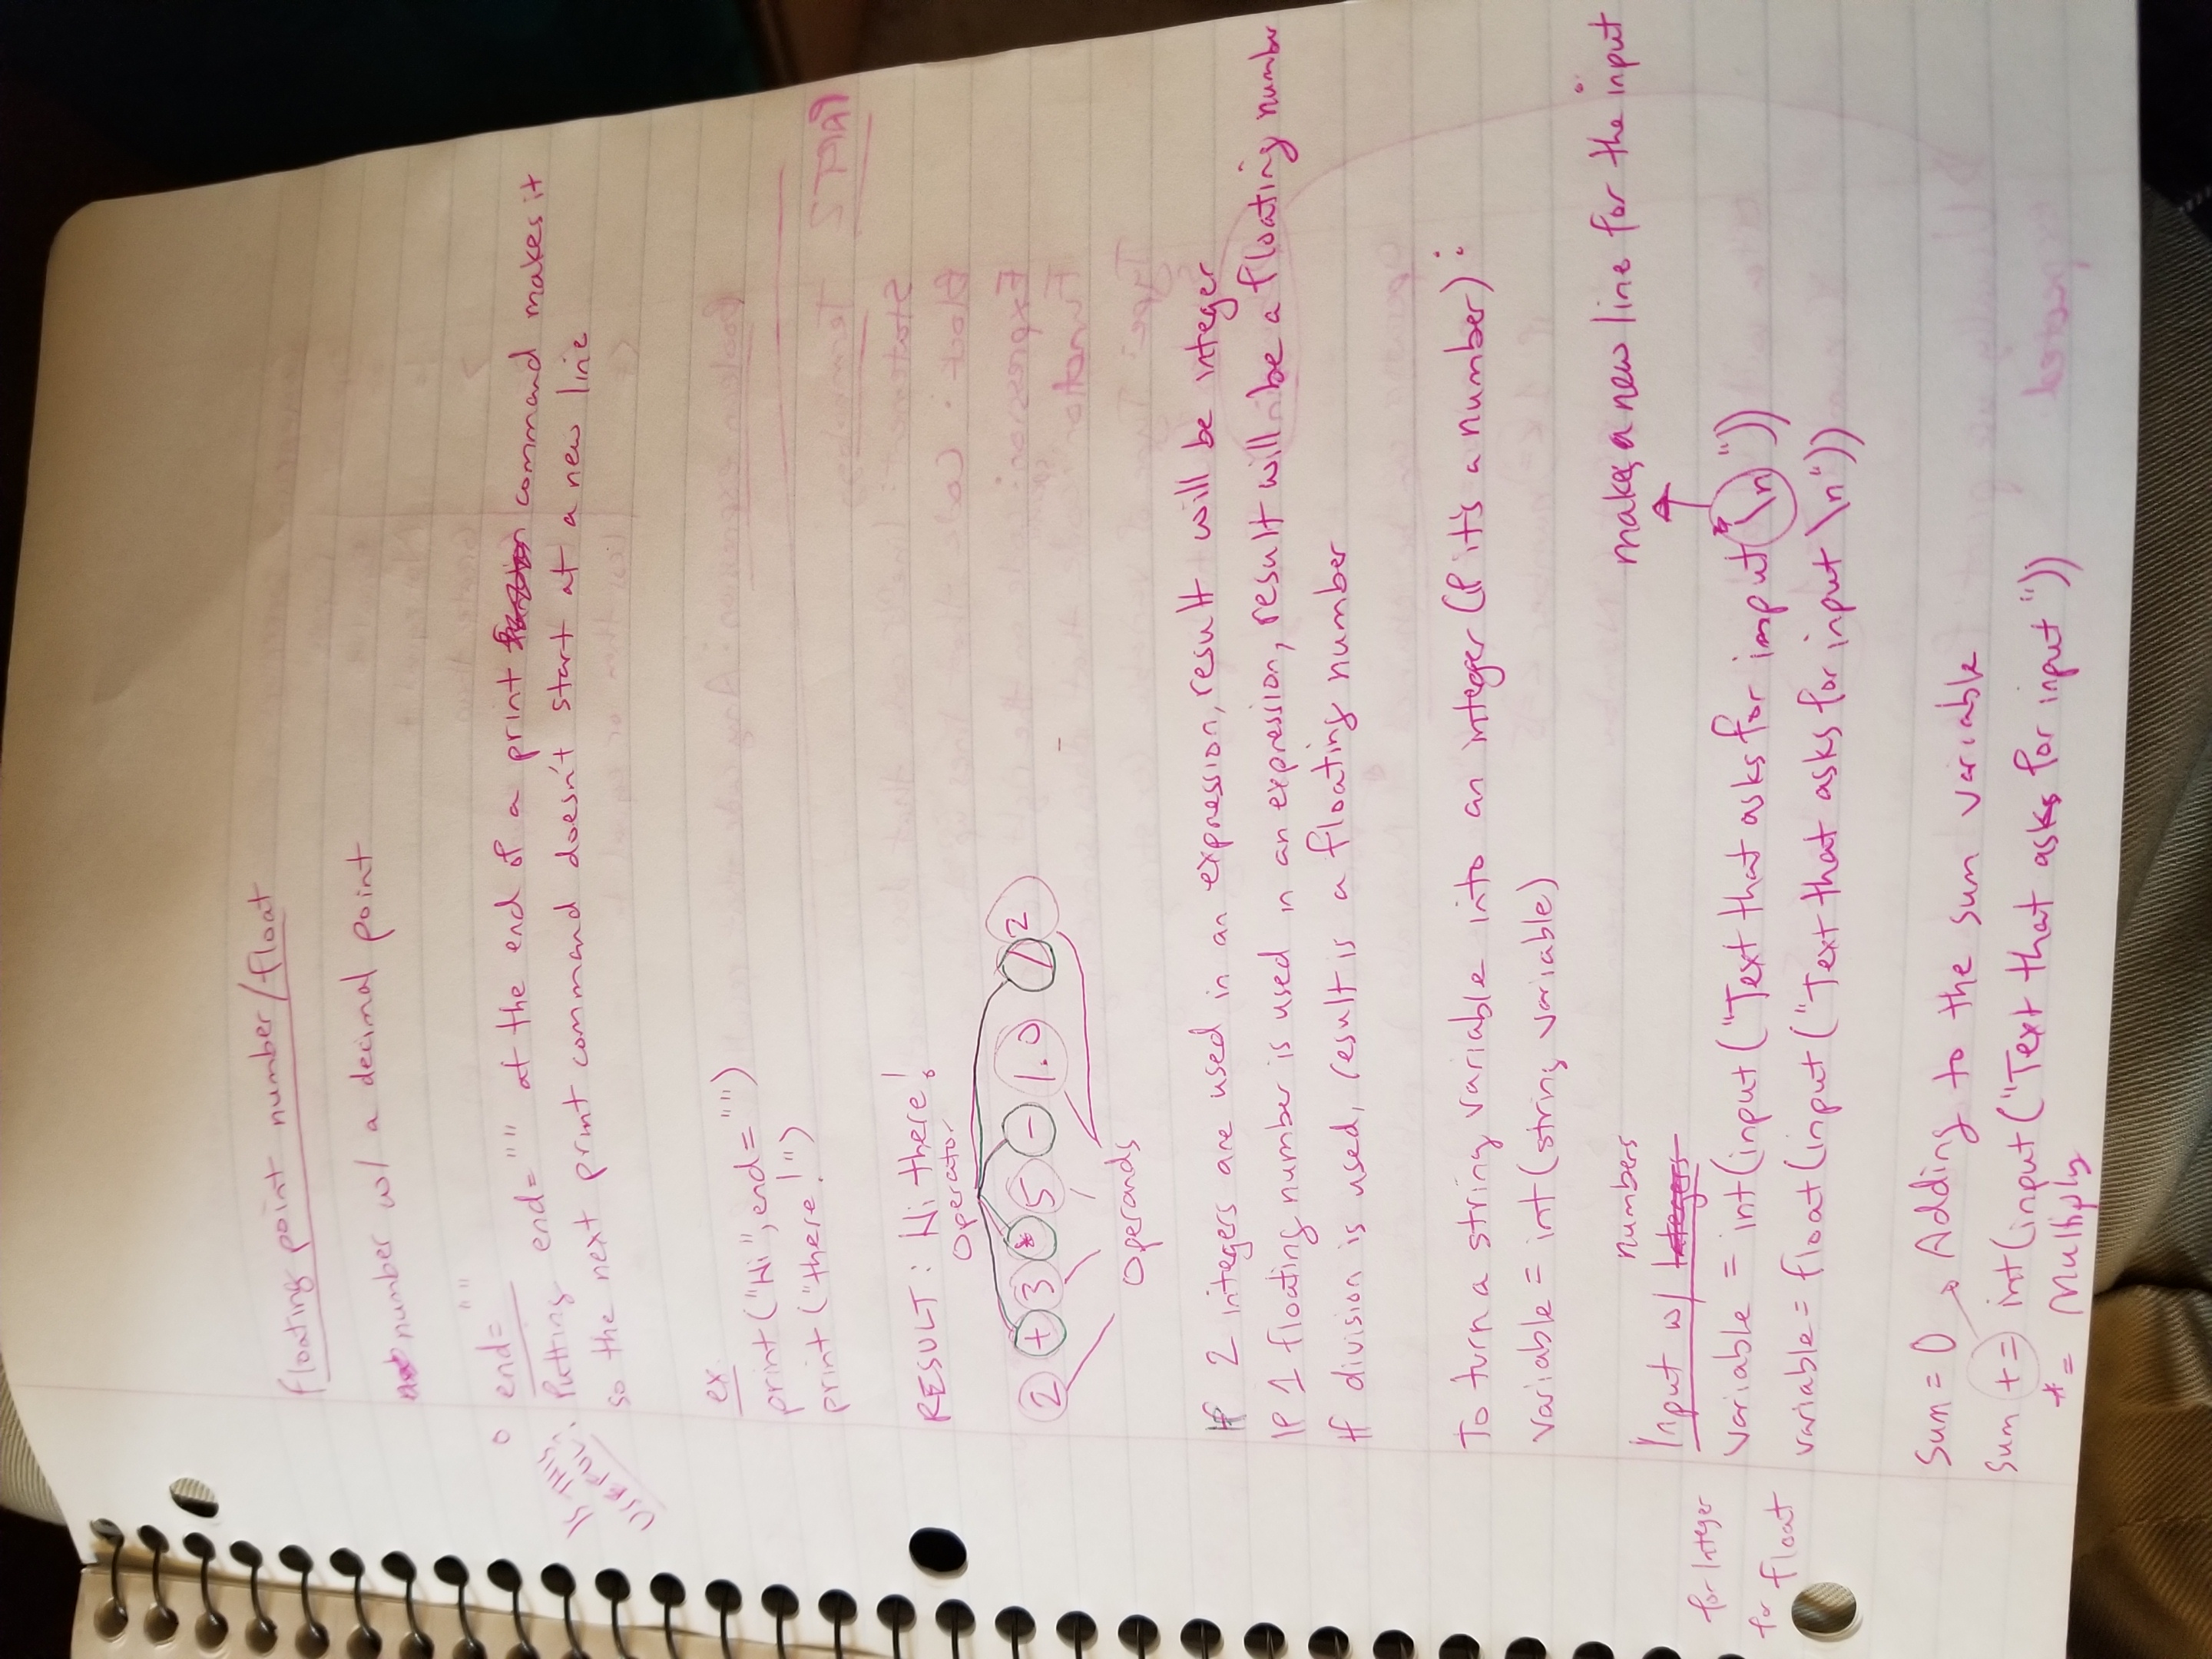 floating point number/float
number w/ a decimal point
end=""
IS THIS
USEFUL?
Putting end="" at the end of a print command makes it
so the next print command doesn't start at a new line
ex
print("Hi", end="")
print("there!")
RESULT: Hi there!
Operator
2 + 3 * 5 - 1.0 / 2
Operands
If 2 integers are used in an expression, result will be integer
If 1 floating number is used in an expression, result will be a floating number
If division is used, result is a floating number
To turn a string variable into an integer (if it's a number):
variable = int(string variable)
makes a new line for the input
numbers
Input w/ Integers
for Integer
variable = int(input("Text that asks for input \n"))
for float
variable = float(input("Text that asks for input \n"))
Sum = 0 Adding to the sum variable
Sum += int(input("Text that asks for input"))
*= Multiply
PART 2 Terminology
Statement:
Block:
Expression:
Function:
Boolean expression: